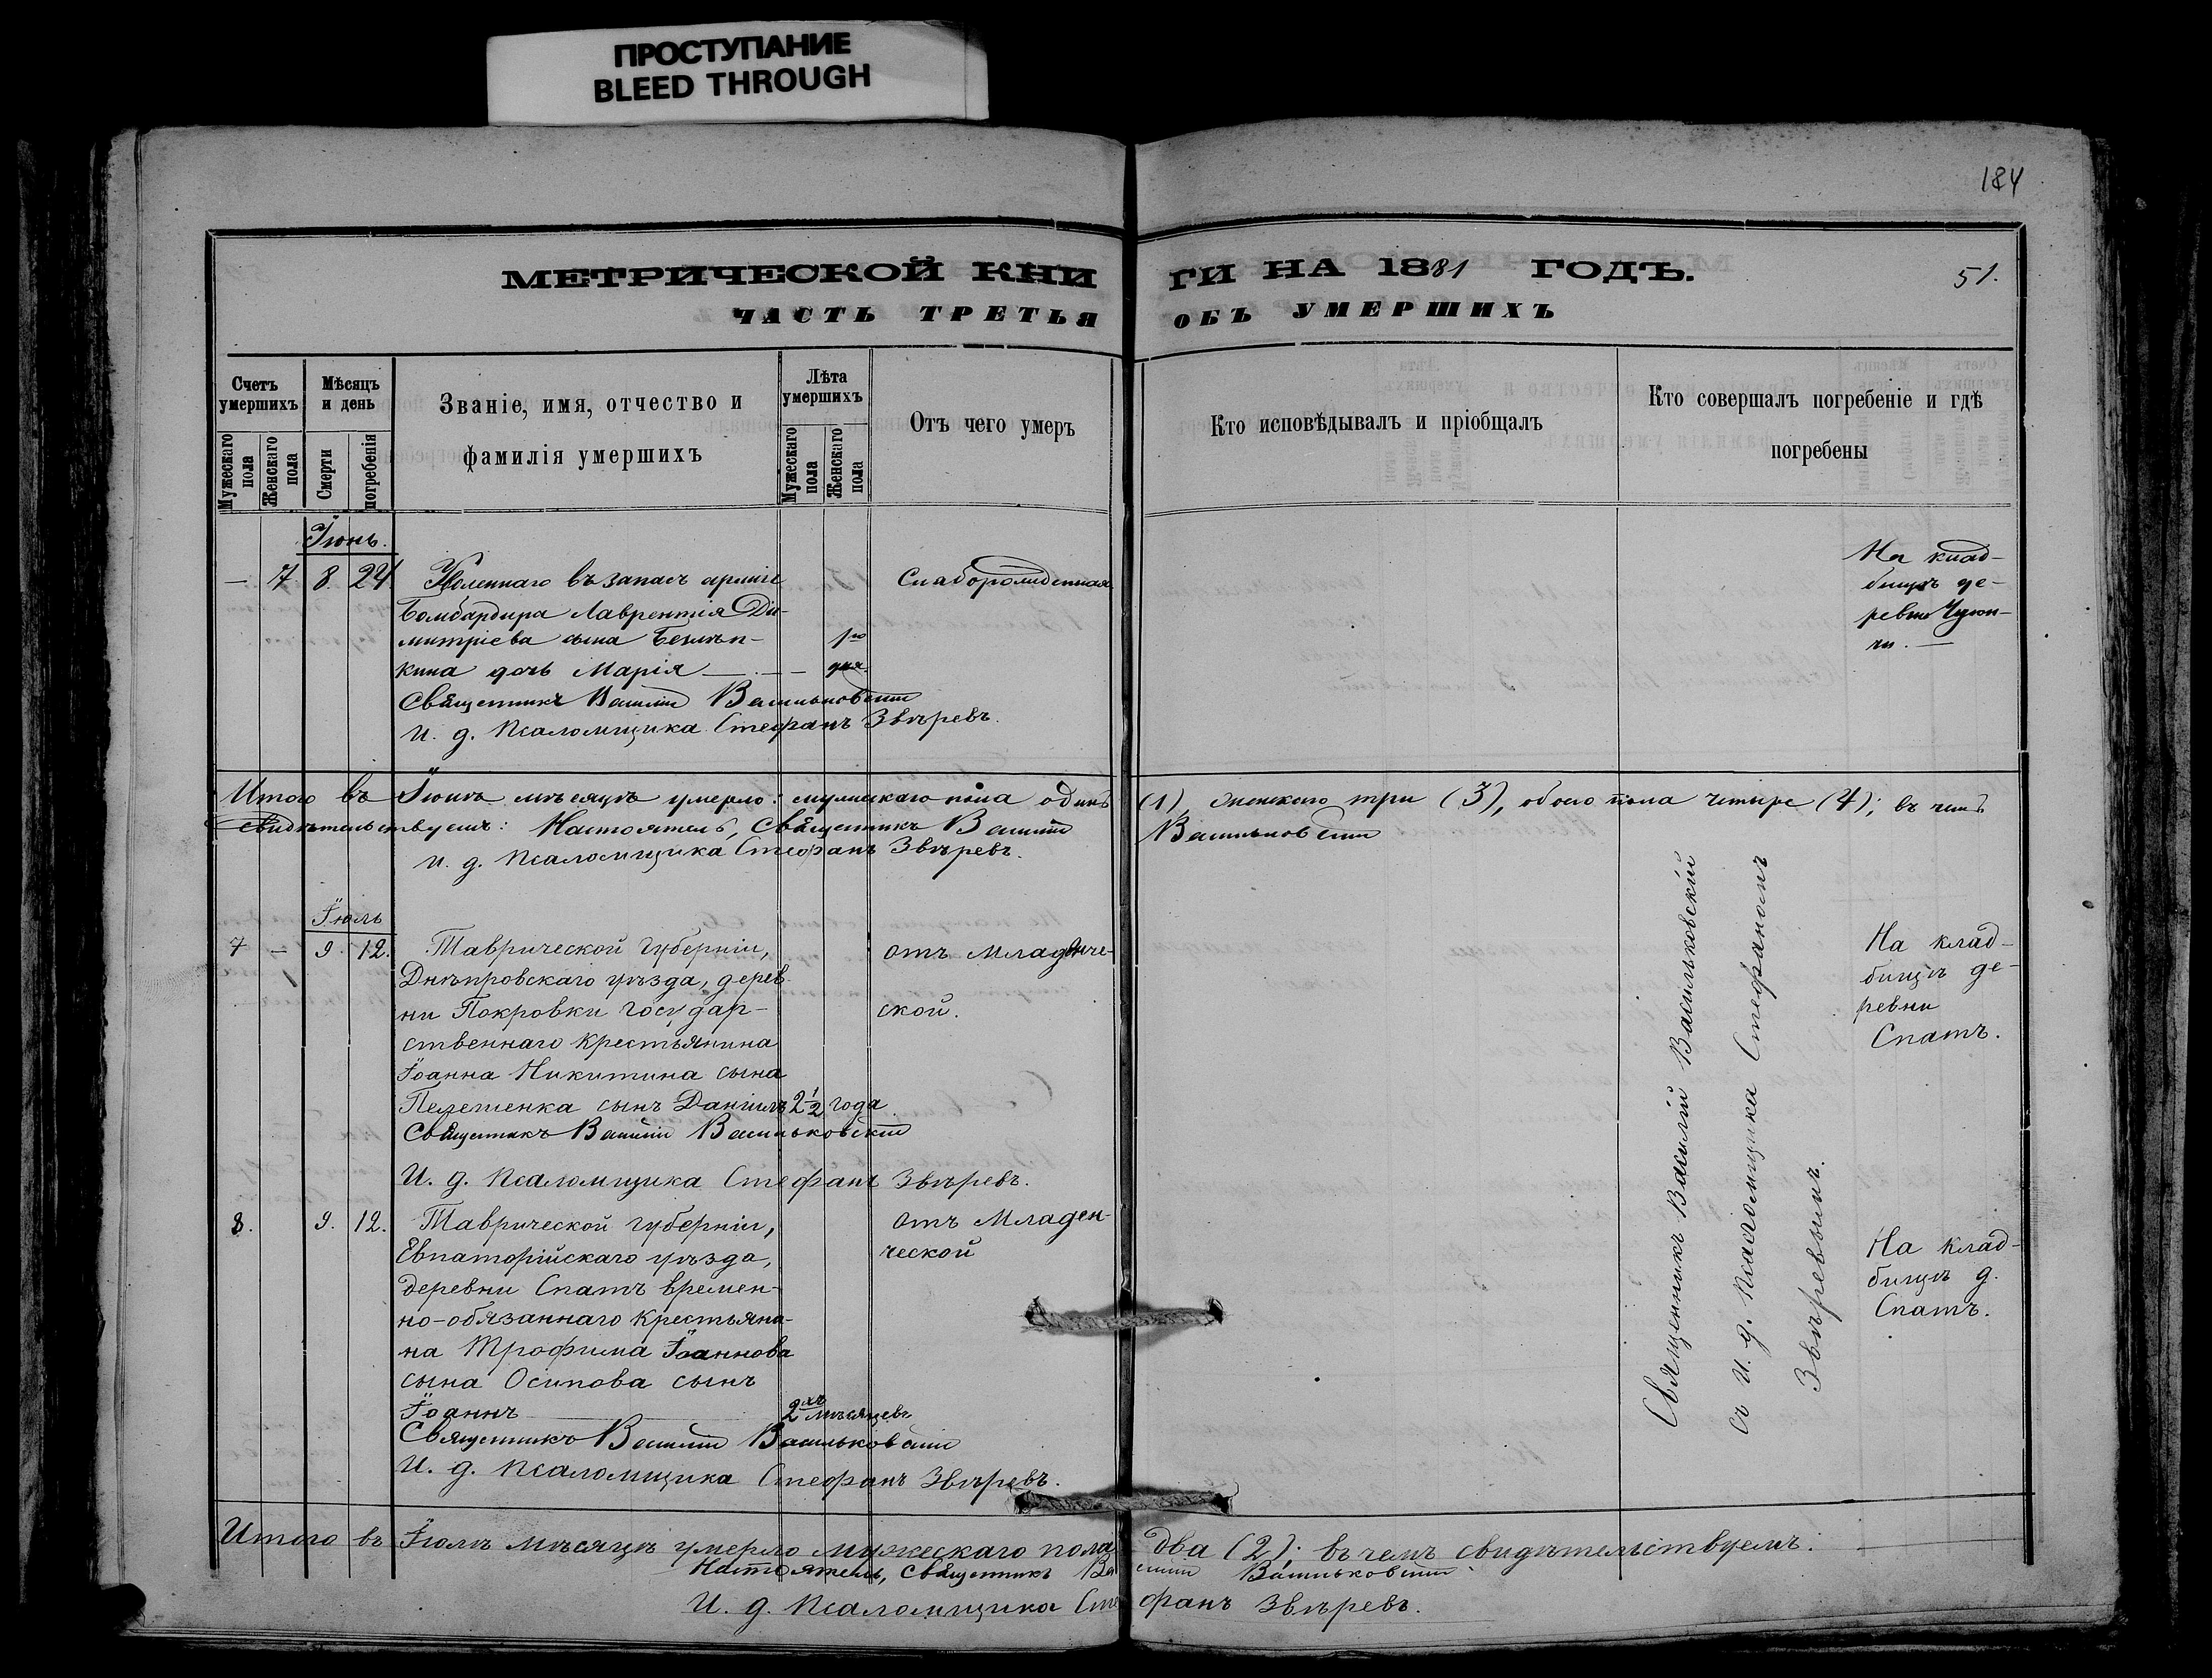 ПРОСТУПАНИЕ
BLEED THROUGH
184
МЕТРИЧЕСКОЙ КНИГИ НА 1881 ГОДЪ.
51.
ЧАСТЬ ТРЕТЬЯ ОБЪ УМЕРШИХЪ
Счетъ умершихъ
Мужескаго пола
Женскаго пола
Мѣсяцъ и день
Смерти
погребенія
Званіе, имя, отчество и
фамилія умершихъ
Лѣта умершихъ
Мужескаго пола
Женскаго пола
Отъ чего умеръ
Кто исповѣдывалъ и пріобщалъ
Кто совершалъ погребеніе и гдѣ
погребены
Іюнь.
— 7 8. 24
Уволеннаго въ запасъ арміи
Бомбардира Лаврентія Ди-
митріева сына
кина дочь Марія —
1го
дня.
Слаборожденная
На клад-
бищѣ де-
ревни
Священникъ Василій Васильковскій
И. д. Псаломщика Стефанъ Звѣревъ.
Итого въ Іюнѣ мѣсяцѣ умерло: мужескаго пола одинъ (1), женскаго три (3), обоего пола четыре (4); въ чемъ
свидѣтельствуемъ: Настоятель, Священникъ Василій Васильковскій
И. д. Псаломщика Стефанъ Звѣревъ.
Іюль
7 — 9. 12.
Таврической губерніи,
Днѣпровскаго уѣзда, дерев-
ни Покровки Государ-
ственнаго крестьянина
Іоанна Никитина сына
сынъ Даніилъ 2½ года.
отъ Младенче-
ской.
На клад-
бищѣ де-
ревни
Спатъ.
Священникъ Василій Васильковскій
И. д. Псаломщика Стефанъ Звѣревъ.
8. 9. 12.
Таврической губерніи,
Евпаторійскаго уѣзда,
деревни Спатъ времен-
но-обязаннаго крестьяни-
на Трофима Іоаннова
сына Осипова сынъ
Іоаннъ
2хъ мѣсяцевъ
отъ Младен-
ческой
На клад-
бищѣ д.
Спатъ.
Священникъ Василій Васильковскій
И. д. Псаломщика Стефанъ Звѣревъ.
Священникъ Василій Васильковскій
съ И. д. Псаломщика Стефаномъ
Звѣревымъ.
Итого въ Іюлѣ мѣсяцѣ умерло мужескаго пола два (2); въ чемъ свидѣтельствуемъ:
Настоятель, Священникъ Василій Васильковскій
И. д. Псаломщика Стефанъ Звѣревъ.